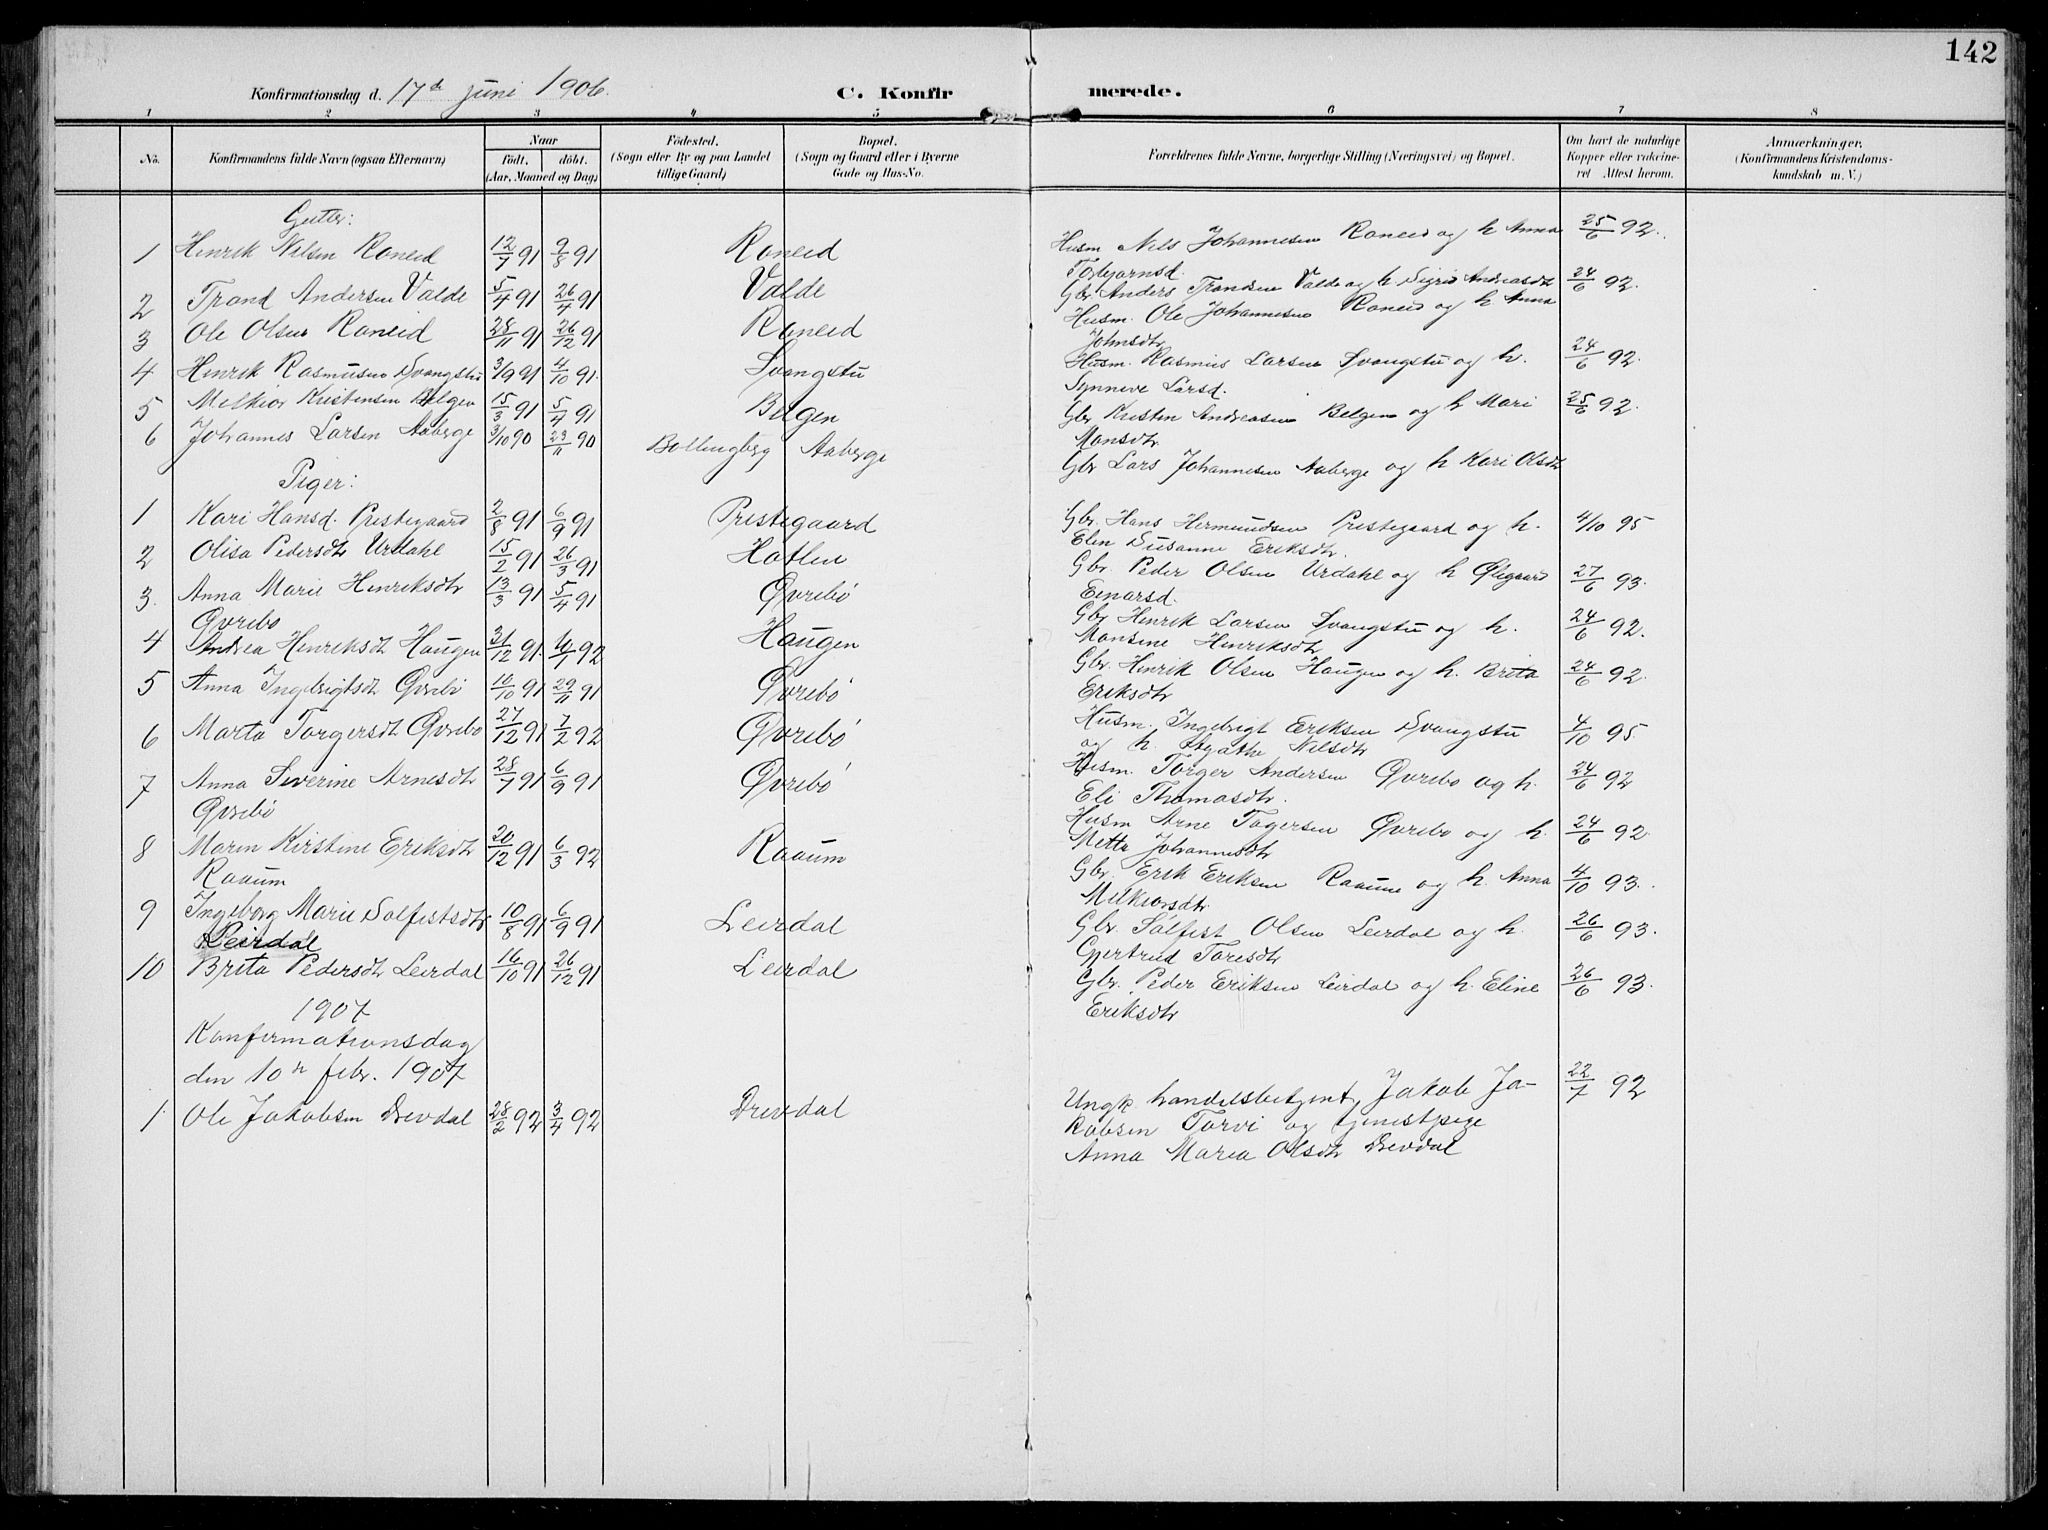 142
Konfirmationsdag d. 17de juni 1906.
C. Konfirmerede.
1 2 3 4 5 6 7 8
No.
Konfirmandens fulde Navn (ogsaa Efternavn)
Naar
födt. döbt.
(Aar, Maaned og Dag)
Födested.
(Sogn eller By og paa Landet
tillige Gaard)
Bopæl.
(Sogn og Gaard eller i Byerne
Gade og Hus-No.
Forældrenes fulde Navne, borgerlige Stilling (Næringsvei) og Bopæl.
Om havt de naturlige
Kopper eller vakcine-
ret Attest herom.
Anmærkninger.
(Konfirmandens Kristendoms-
kundskab m. V.)
Gutter:
1 Henrik Nilsen Roneid 12/7 91 9/8 91 Roneid Husm Nils Johannesen Roneid og h Anna 25/6 92.
Torbjørnsd.
2 Trond Andersen Valde 5/4 91 26/4 91 Valde Gbr Anders Trondsen Valde og h Sigrid Andreasdtr 24/6 92.
3 Ole Olsen Roneid 28/11 91 26/12 91 Roneid Husm. Ole Johannesen Roneid og h Anna
Johnsdtr
4 Henrik Rasmusen Svangstu 3/9 91 4/10 91. Svangstu Husm. Rasmus Larsen Svangstu og h. 24/6 92.
Synneve Larsd.
5 Melkior Kristensen Bolgen 15/3 91 5/4 91 Bolgen Gbr Kristen Andreasen Bolgen og h Mari 25/6 92.
Monsdtr.
6 Johannes Larsen Aaberge 3/10 90 23/11 90 Bollingberg Aaberge Gbr Lars Johannesen Aaberge og h Kari Olsdtr
Piger:
1 Kari Hansd. Prestegaard 2/8 91 6/9 91 Prestegaard Gbr. Hans Hermundsen Prestegaard og h. 4/10 95
Elen Susanne Eriksdtr.
2 Olisa Pedersdtr Urdahl 15/2 91 26/3 91 Hatlen Gbr. Peder Olsen Urdahl og h Ølegaard 27/6 93.
Einarsd.
3. Anna Marie Henriksdtr 13/3 91 5/4 91 Øvrebö Gbr Henrik Larsen Svangstu og h. 24/6 92.
Øvrebo
Monsine Henriksdtr
4 Andrea Henriksdt Haugen 31/12 91. 10/1 92 Haugen Gbr. Henrik Olsen Haugen og h. Brita 24/6 92.
Eriksdtr
5 Anna Ingebrigtsdt Øvrebö 10/10 91 29/11 91 Øvrebö Husm. Ingebrigt Eriksen Svangstu 4/10 95.
og h. Agathe Nilsdtr
6 Marta Torgersdt Øvrebö 27/12 91 7/2 92 Øvrebö Husm. Torger Andersen Øvrebo og h. 24/6 92
Eli Thomasdtr.
7 Anna Severine Arnesdtr 28/7 91 6/9 91 Øvrebö Husm Arne Togersen Øvrebo og h. 24/6 92.
Øvrebö
Mette Johannesdtr
8 Maren Kirstine Eriksdtr 20/12 91 6/3 92 Raaum Gbr. Erik Eriksen Raaum og h. Anna 4/10 93.
Raaum
Melkiorsdtr.
9 Ingeborg Marie Solfestsdtr 10/8 91 6/9 91 Leirdal Gbr. Solfest Olsen Leirdal og h. 26/6 93.
Leirdal
Gjertrud Toresdtr
10 Brita Pedersdtr Leirdal 16/10 91 26/12 91 Leirdal Gbr. Peder Eriksen Leirdal og h. Eline 26/6 93.
Eriksdtr
1907
Konfirmationsdag
den 10n febr. 1907
1 Ole Jakobsen Drevdal 28/2 92 3/4 92 Drevdal Ungk. handelsbetjent, Jakob Ja- 22/7 92
kobsen Torvi og tjenestpige
Anna Maria Olsdtr Drevdal